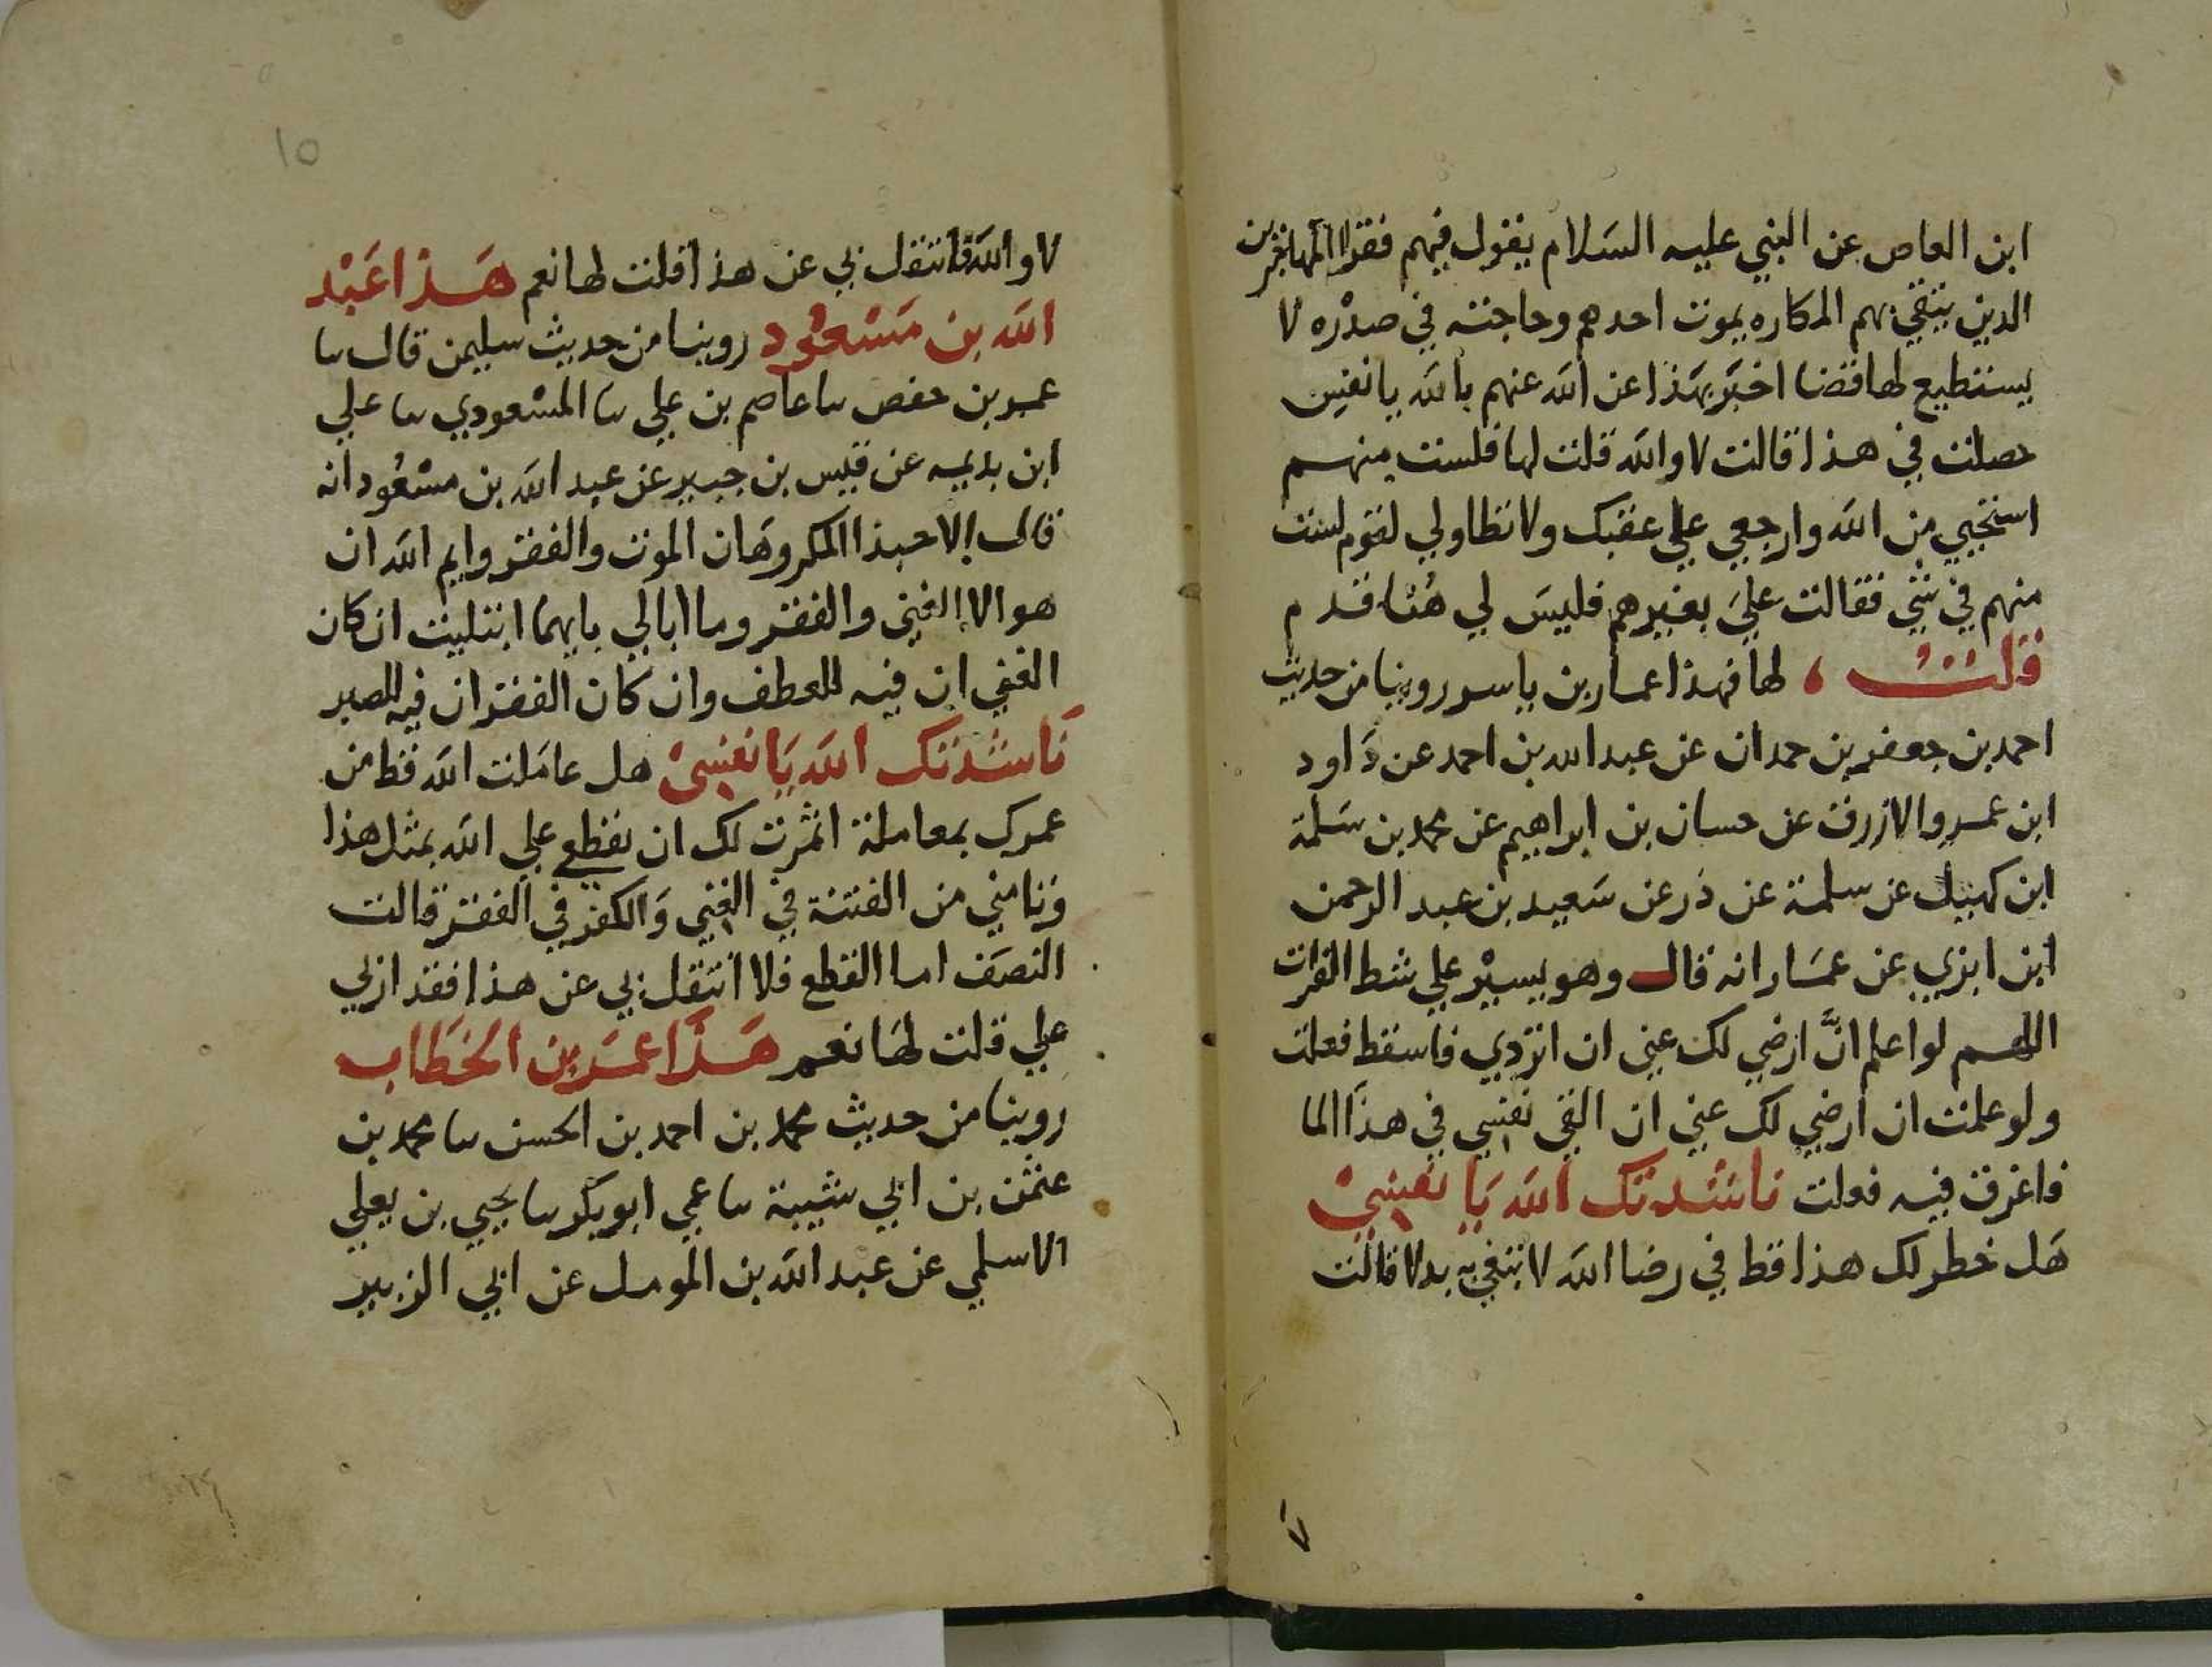 ابن العاص عن النبي عليه السلام يقول فيهم فقرا المهاجرين
الذين يتقي بهم المكاره يموت احدهم وحاجته في صدره لا
يستطيع لها قضا اخبر بهذا عن الله عنهم بالله يا نفس
حصلت في هذا قالت لا والله قلت لها فلست منهم
استحيي من الله وارجعي علي عقبك ولا تطاولي لقوم لست
منهم في شي فقالت علي بغيرهم فليس لي هنا قدم
قلت لها فهذا عمار بن ياسر روينا من حديث
احمد بن جعفر بن حمدان عن عبد الله بن احمد عن داود
ابن عمرو الازرق عن حسان بن ابراهيم عن محمد بن سلمة
ابن كهيل عن سلمة عن ذر عن سعيد بن عبد الرحمن
ابن ابزي عن عمار انه قال وهو يسير علي شط الفرات
اللهم لو اعلم ان ارضي لك عني ان اتردي فاسقط فعلت
ولو علمت ان ارضي لك عني ان القي نفسي في هذا الما
فاغرق فيه فعلت ناشدتك الله يا نفسي
هل خطر لك هذا قط في رضا الله لا بدلا قالت
٧
١٥
لا والله فانتقل بي عن هذا قلت لها نعم هذا عبد
الله بن مسعود روينا من حديث سليمن قال سا
عمر بن حفص سا عاصم بن علي سا المسعودي سا علي
ابن بذيمه عن قيس بن جبير عن عبد الله بن مسعود انه
قال الا حبذا المكروهان الموت والفقر وايم الله ان
هو الا الغني والفقر وما ابالي بايهما ابتليت ان كان
الغني ان فيه للعطف وان كان الفقر ان فيه للصبر
ناشدتك الله يا نفسي هل عاملت الله قط من
عمرك بمعاملة اثمرت لك ان نقطع علي الله بمثل هذا
وتامني من الفتنة في الغني والكفر في الفقر قالت
النصف اما القطع فلا انتقل بي عن هذا فقد ازبي
علي قلت لها نعم هذا عمر بن الخطاب
روينا من حديث محمد بن احمد بن الحسن سا محمد بن
عثمن بن ابي شيبة سا عمي ابو بكر سا يحيي بن يعلي
الاسلمي عن عبد الله بن المومل عن ابي الزبير